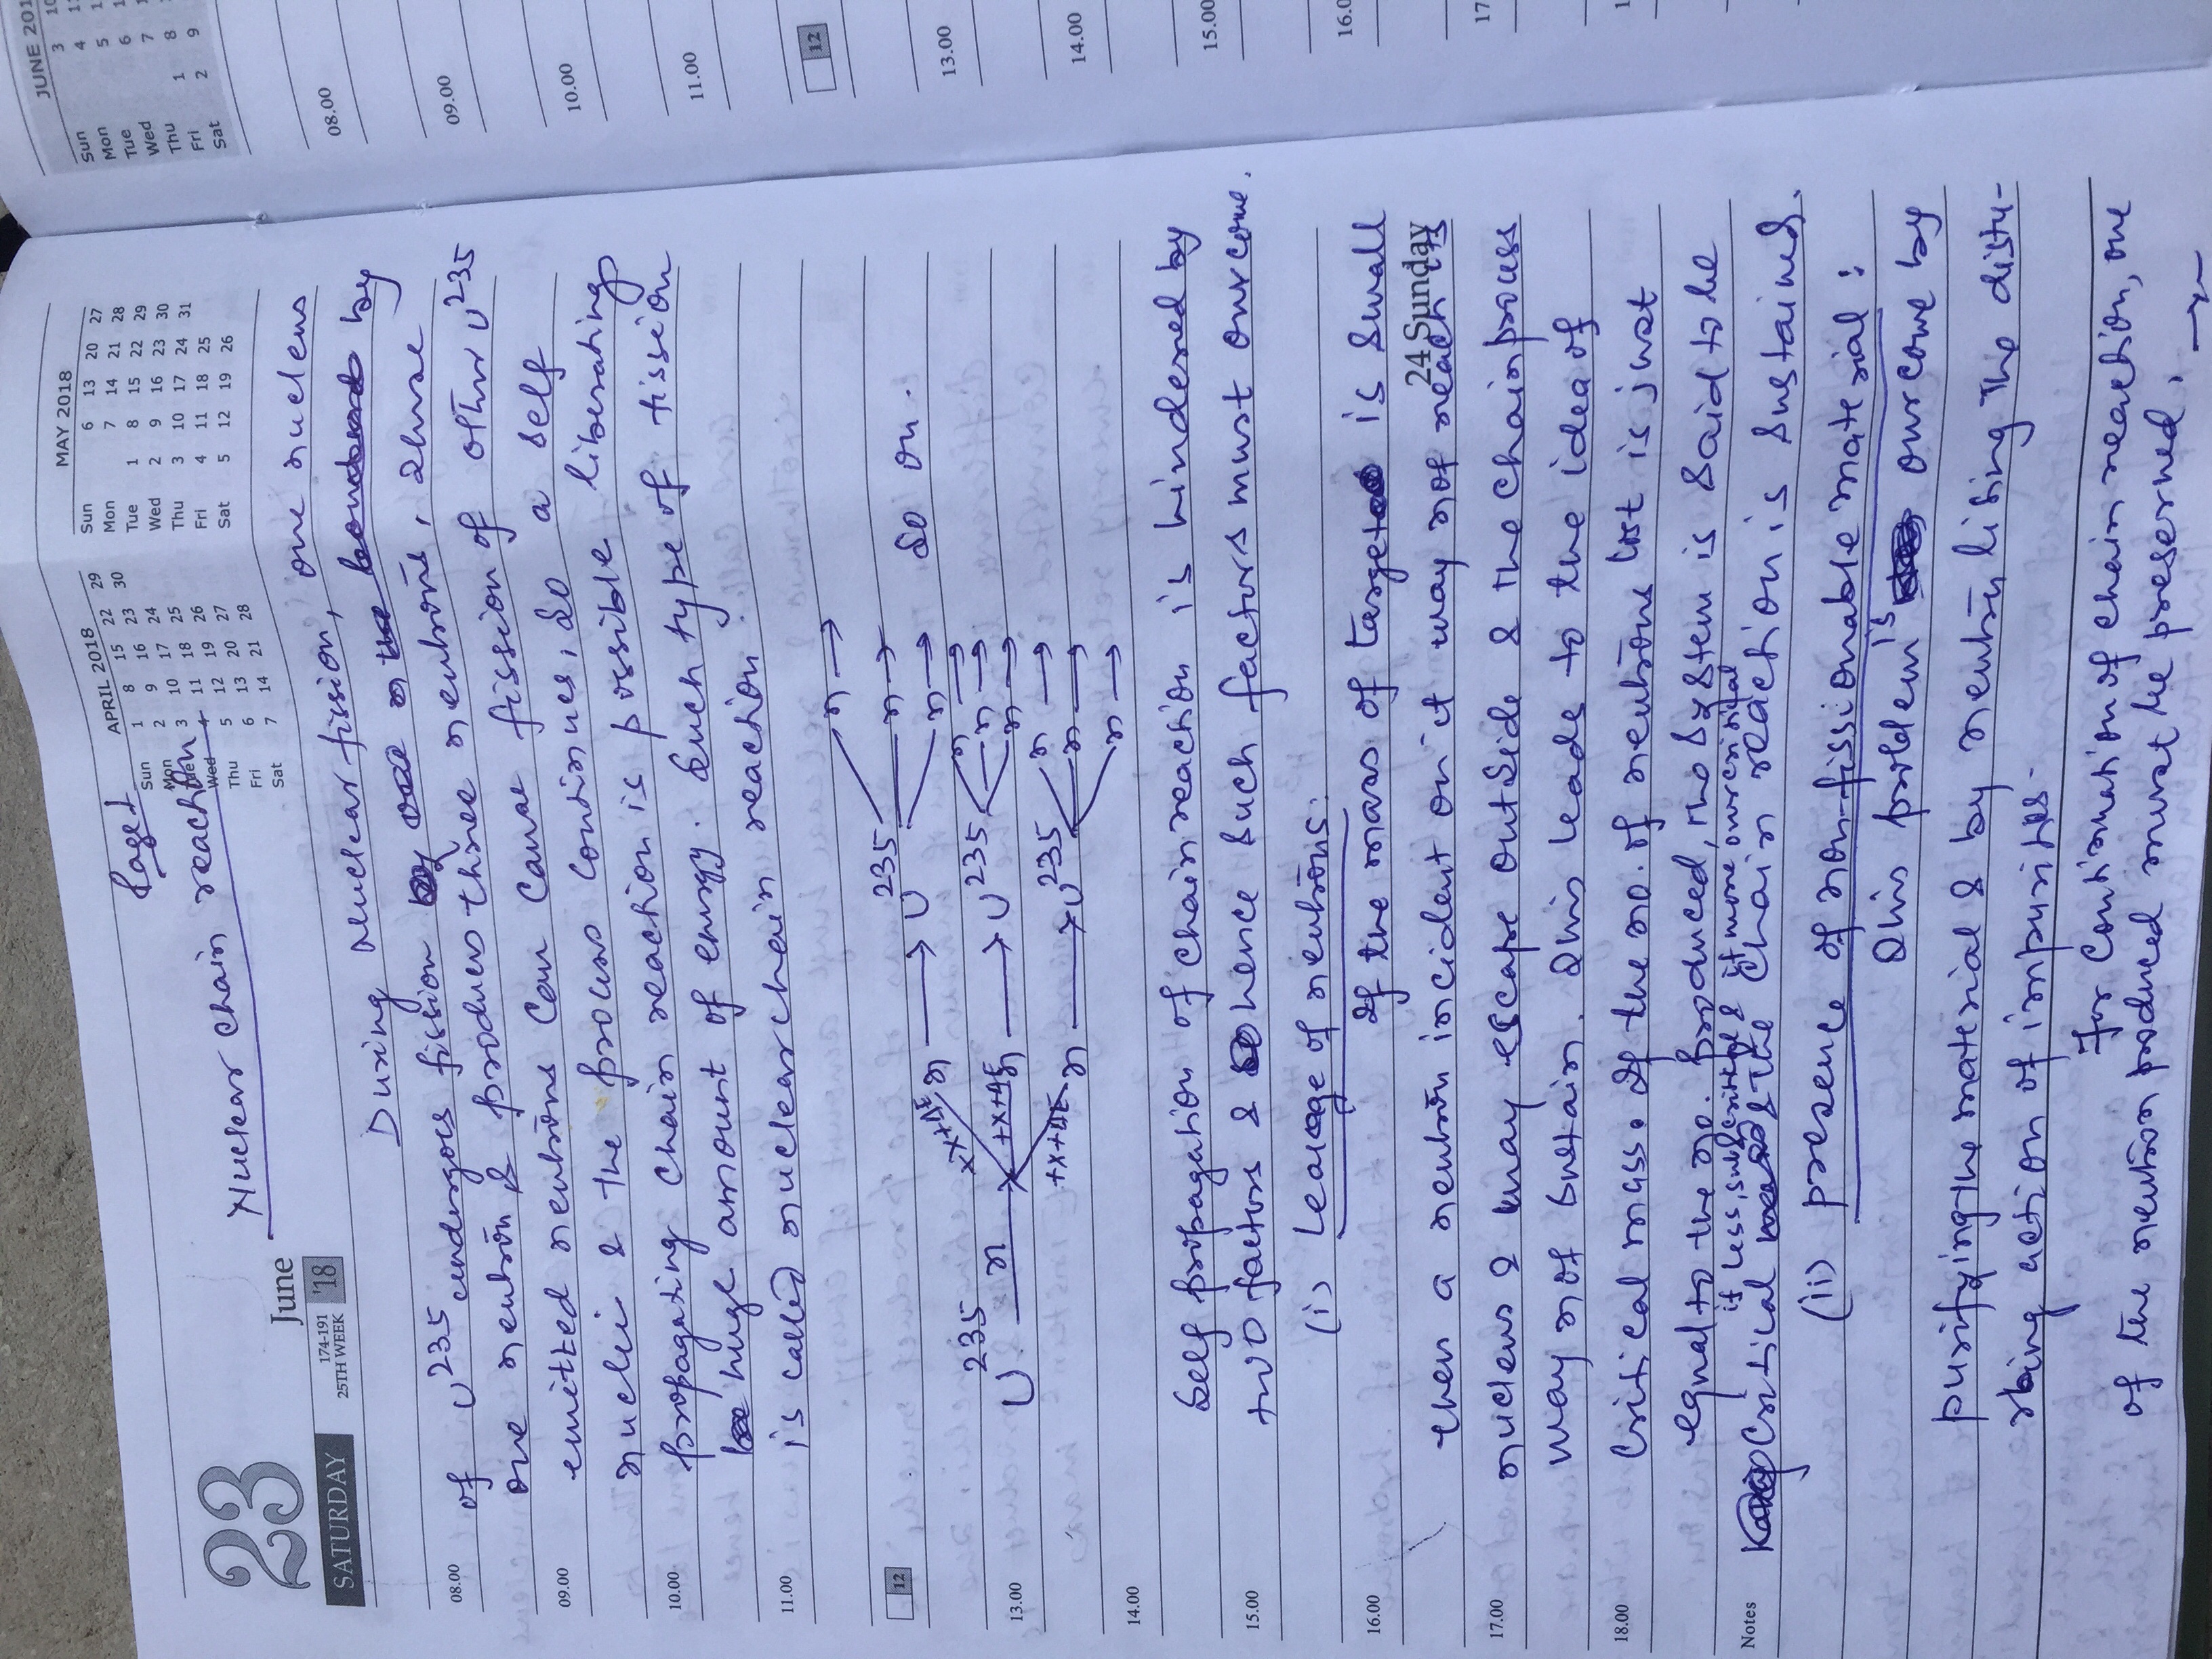 23
June
SATURDAY
174-191
25TH WEEK
'18
APRIL 2018
Sun 1 8 15 22 29
Mon 2 9 16 23 30
Tue 3 10 17 24
Wed 4 11 18 25
Thu 5 12 19 26
Fri 6 13 20 27
Sat 7 14 21 28
MAY 2018
Sun 6 13 20 27
Mon 7 14 21 28
Tue 1 8 15 22 29
Wed 2 9 16 23 30
Thu 3 10 17 24 31
Fri 4 11 18 25
Sat 5 12 19 26
Page 1
Nuclear chain reaction
During nuclear fission, one nucleus
of U235 undergoes fission by
one neutron & produces three neutrons, these
emitted neutrons can cause fission of other U235
nuclei & the process continues, so a self
propagating chain reaction is possible liberating
huge amount of energy. Such type of fission
is called nuclear chain reaction.
U235 n
X+X+4E n → U235 n → n → n →
+X+4E n → U235 n → n → n →
+X+4E n → U235 n → n → n →
so on.
Self propagation of chain reaction is hindered by
two factors & hence such factors must overcome.
(i) Leakage of neutrons:
If the mass of target is small
then a neutron incident on it may not reach its
nucleus & may escape outside & the chain process
may not sustain. This leads to the idea of
Critical mass. If the no. of neutrons lost is just
equal to the no. produced, the system is said to be
if less, subcritical & if more overcritical
Critical & the chain reaction is sustained.
(ii) presence of non-fissionable material:
This problem is overcome by
purifying the material & by neutralising the distu-
rbing action of impurities.
For continuation of chain reaction, one
of the neutron produced must be preserved.
08.00
09.00
10.00
11.00
12
13.00
14.00
15.00
16.00
17.00
18.00
Notes
24 Sunday
JUNE 201
Sun 3 10
Mon 4 1
Tue 5
Wed 6
Thu 7
Fri 1 8
Sat 2 9
08.00
09.00
10.00
11.00
12
13.00
14.00
15.00
16.0
17
1